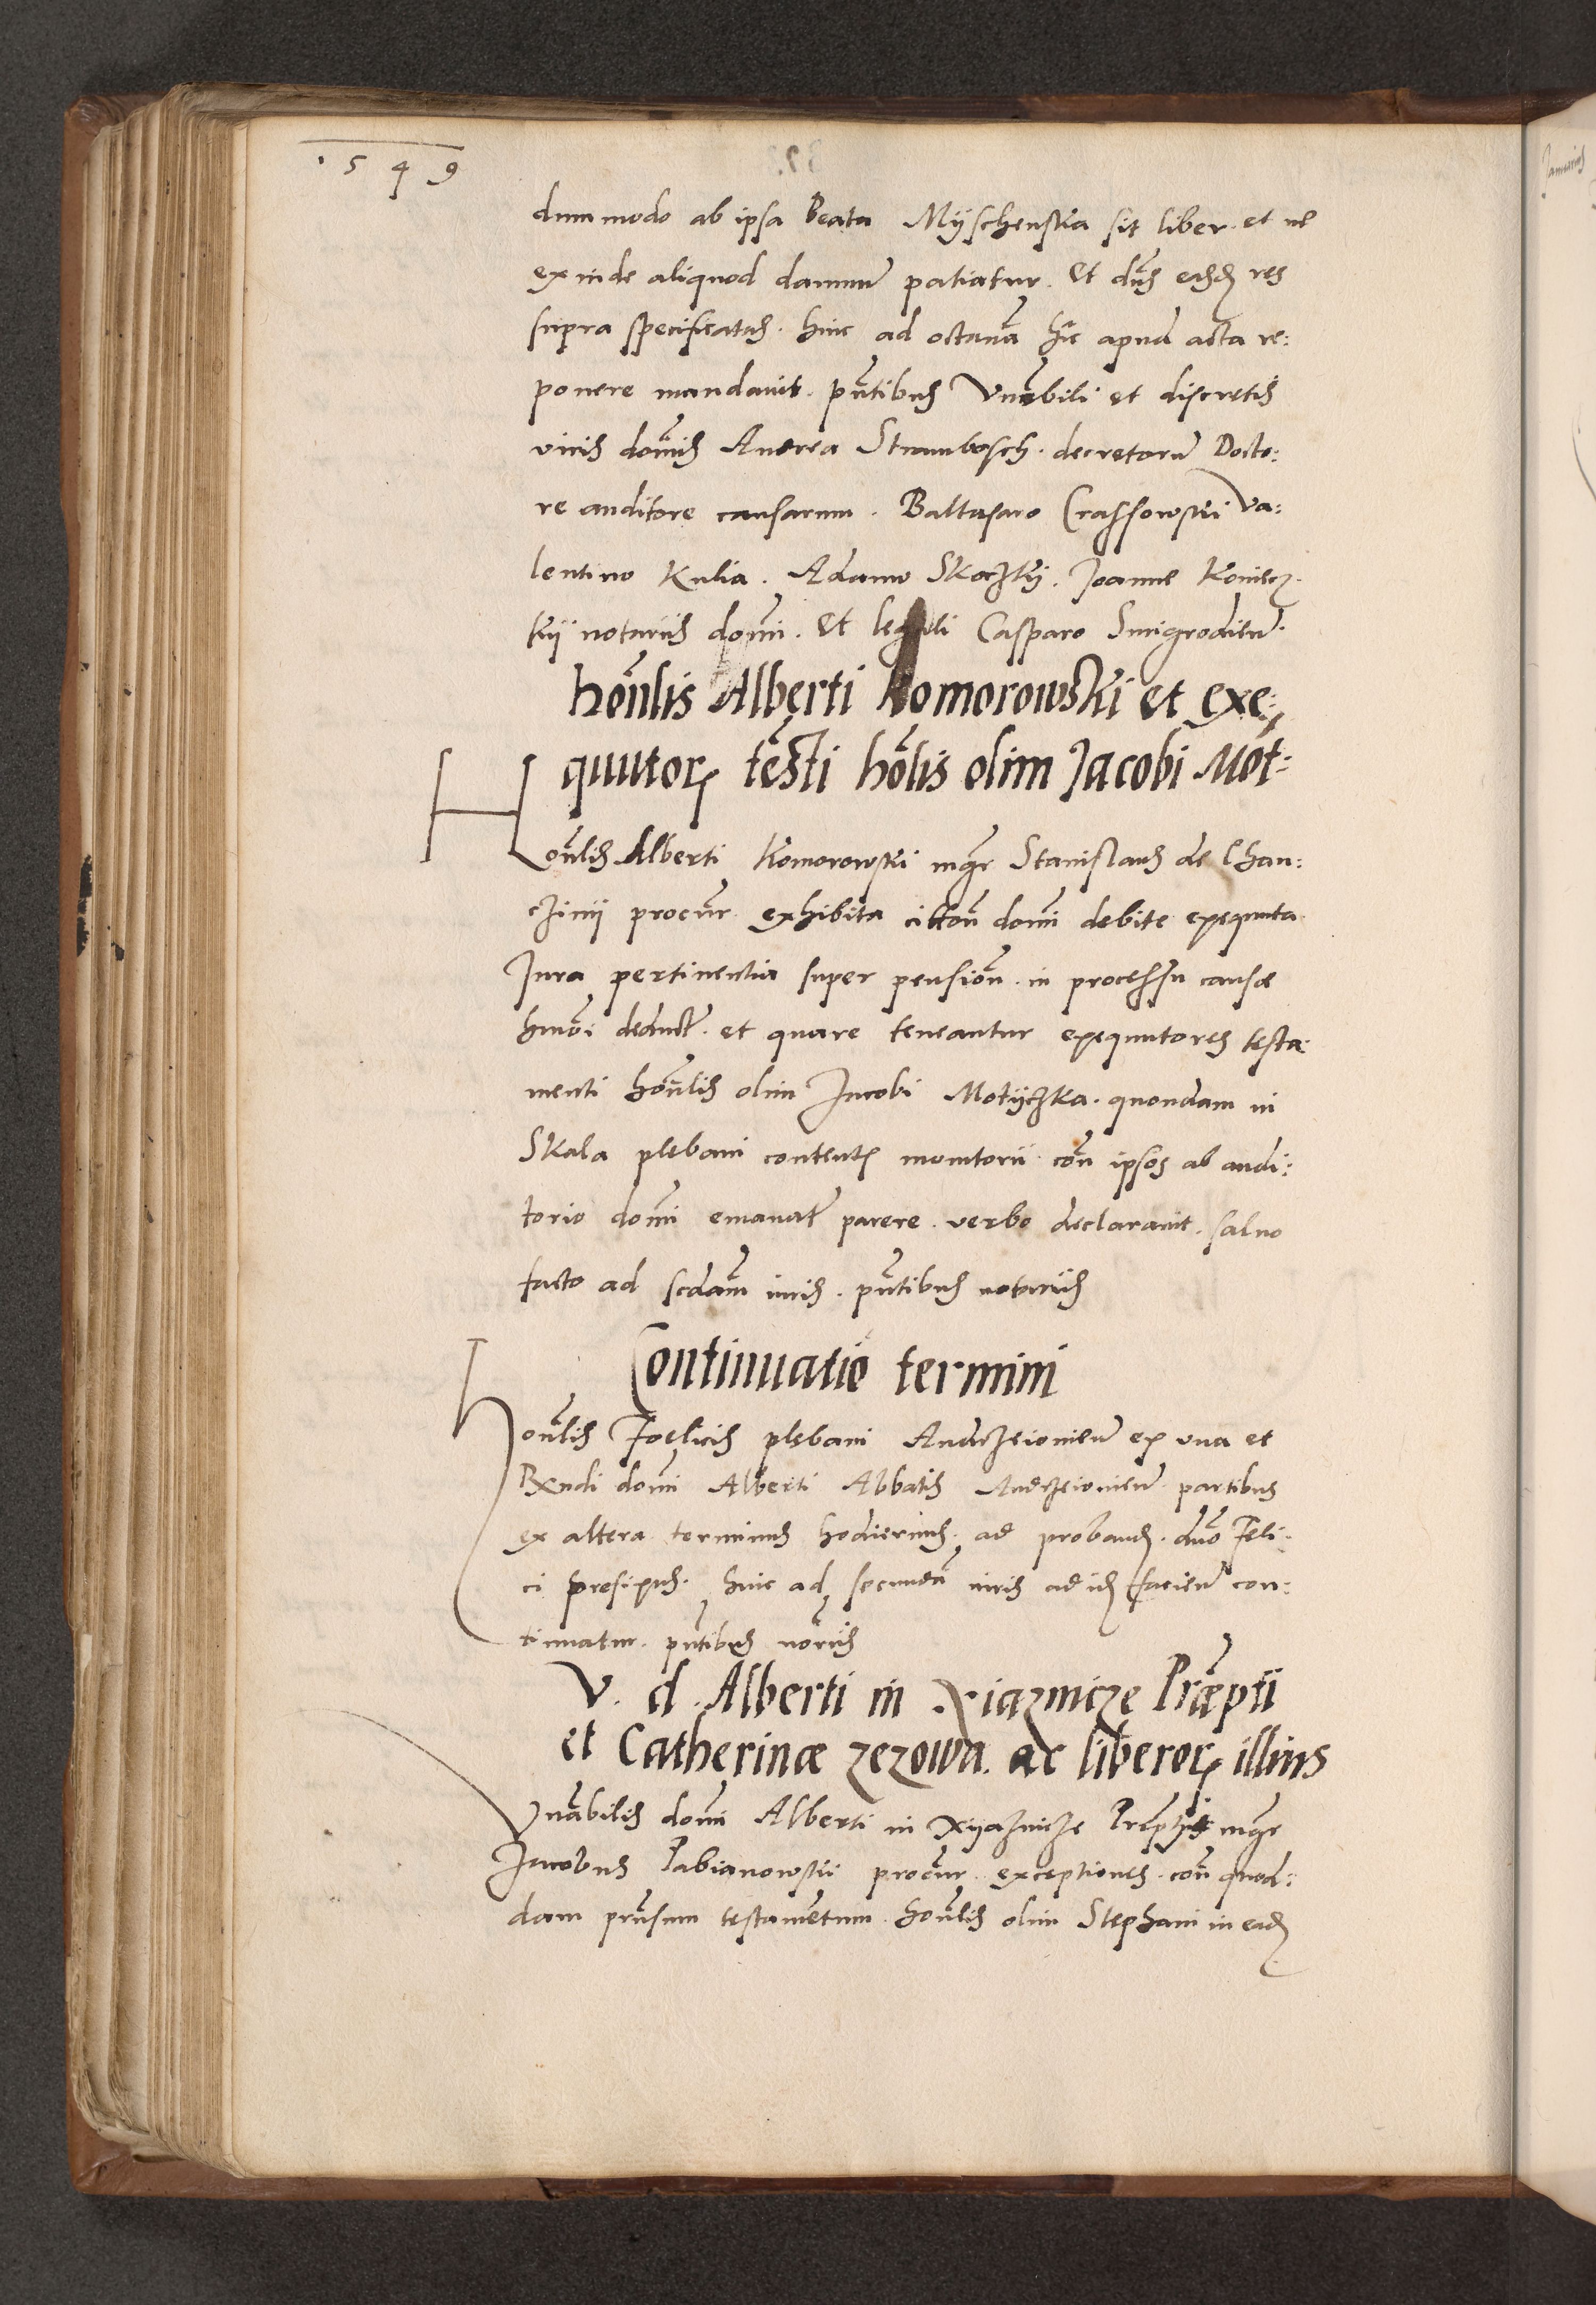 1549
dummodo ab ipsa Beata Mÿschenska sit liber. et ne
exinde aliquod damnũ patiatur. Et dñs easdẽ res
supra specificatas. hinc ad octauã hĩc apud acta re:
ponere mandauit. pñtibus Vnẽbili et discretis
viris dom̃is Andrea Strambosch. decretorũ Docto:
re auditore causarum. Baltasaro Crassowski Va:
lentino Kulia. Adamo Skoczkÿ. Joanne Koniecz.
kÿ notariis dom̃i. Et legali Casparo Smigrodieñ.
hoñlis Alberti Komorowski et exe:
quutorꝝ tẽsti hoñlis olim Jacobi Mot:
Hoñlis Alberti Komorowski mgr̃ Stanislaus de Chan:
czinÿ procur̃. exhibita cittoñ dom̃i debite exequuta
Jura pertinentia super pensioñ. in processu causæ
hm̃oi deduct̃. et quare teneantur exequutores testa:
menti hoñlis olim Jacobi Motÿczka. quondam in
Skala plebani contentꝭ monitorii con̄ ipsos ab audi:
torio dom̃i emanat̃ parere. verbo declarauit. saluo
facto ad sc̃dam iuris. pñtibus notariis
Continuatio termini
Hoñlis Foelicis plebani Andrzeiouieñ ex vna et
Rx̃ndi dom̃i Alberti Abbatis Andrzeiouieñ partibus
ex altera terminus hodiernus. ad proband̃. dño Feli:
ci prefixus. hinc ad secundã iuris ad id̃ facieñ con:
tinuatur. pñtibus nõriis
V. d. Alberti in Xiaznicze Præp̃ti
et Catherinæ Zezowa. ac liberorꝝ illius
Vnãbilis dom̃i Alberti in Xÿaznicze Prẽpti mgr̃
Jacobus Pabianowski procur̃. exceptiones. con̄ quod:
dam prẽnsum testamentum. hoñlis olim Stephani in ead̃